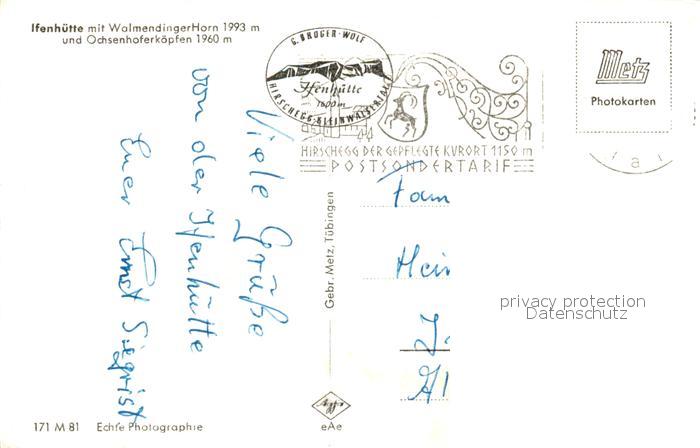 Ifenhütte mit WalmendingerHorn 1993 m
und Ochsenhoferköpfen 1960 m
G. BROGER-WOLF
Ifenhütte
1600 m
HIRSCHEGG-KLEINWALSERTAL
HIRSCHEGG DER GEPFLEGTE KURORT 1150 m
POSTSONDERTARIF
Metz
Photokarten
a
Viele Grüße
von der Ifenhütte
Euer Ernst Siegrist
Gebr. Metz, Tübingen
Fam
Hei
privacy protection
Datenschutz
Agfa
eAe
171 M 81 Echte Photographie